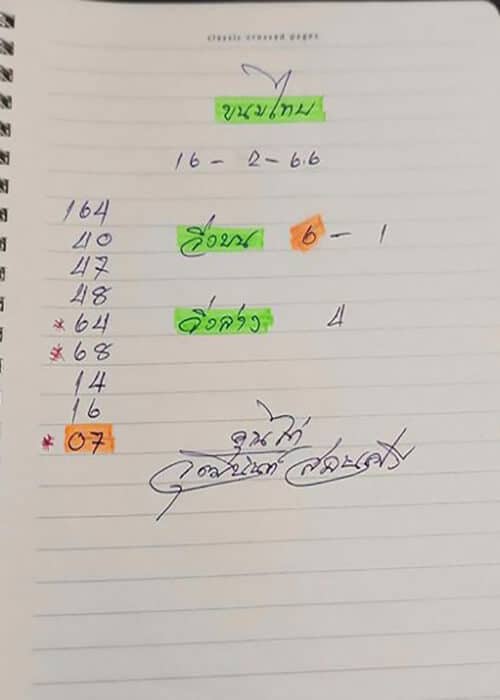 classic crossed pages
ขนมไทย
16 - 2 - 66
164
40
47
48
* 64
* 68
14
16
* 07
วิ่งบน 6 - 1
วิ่งล่าง 4